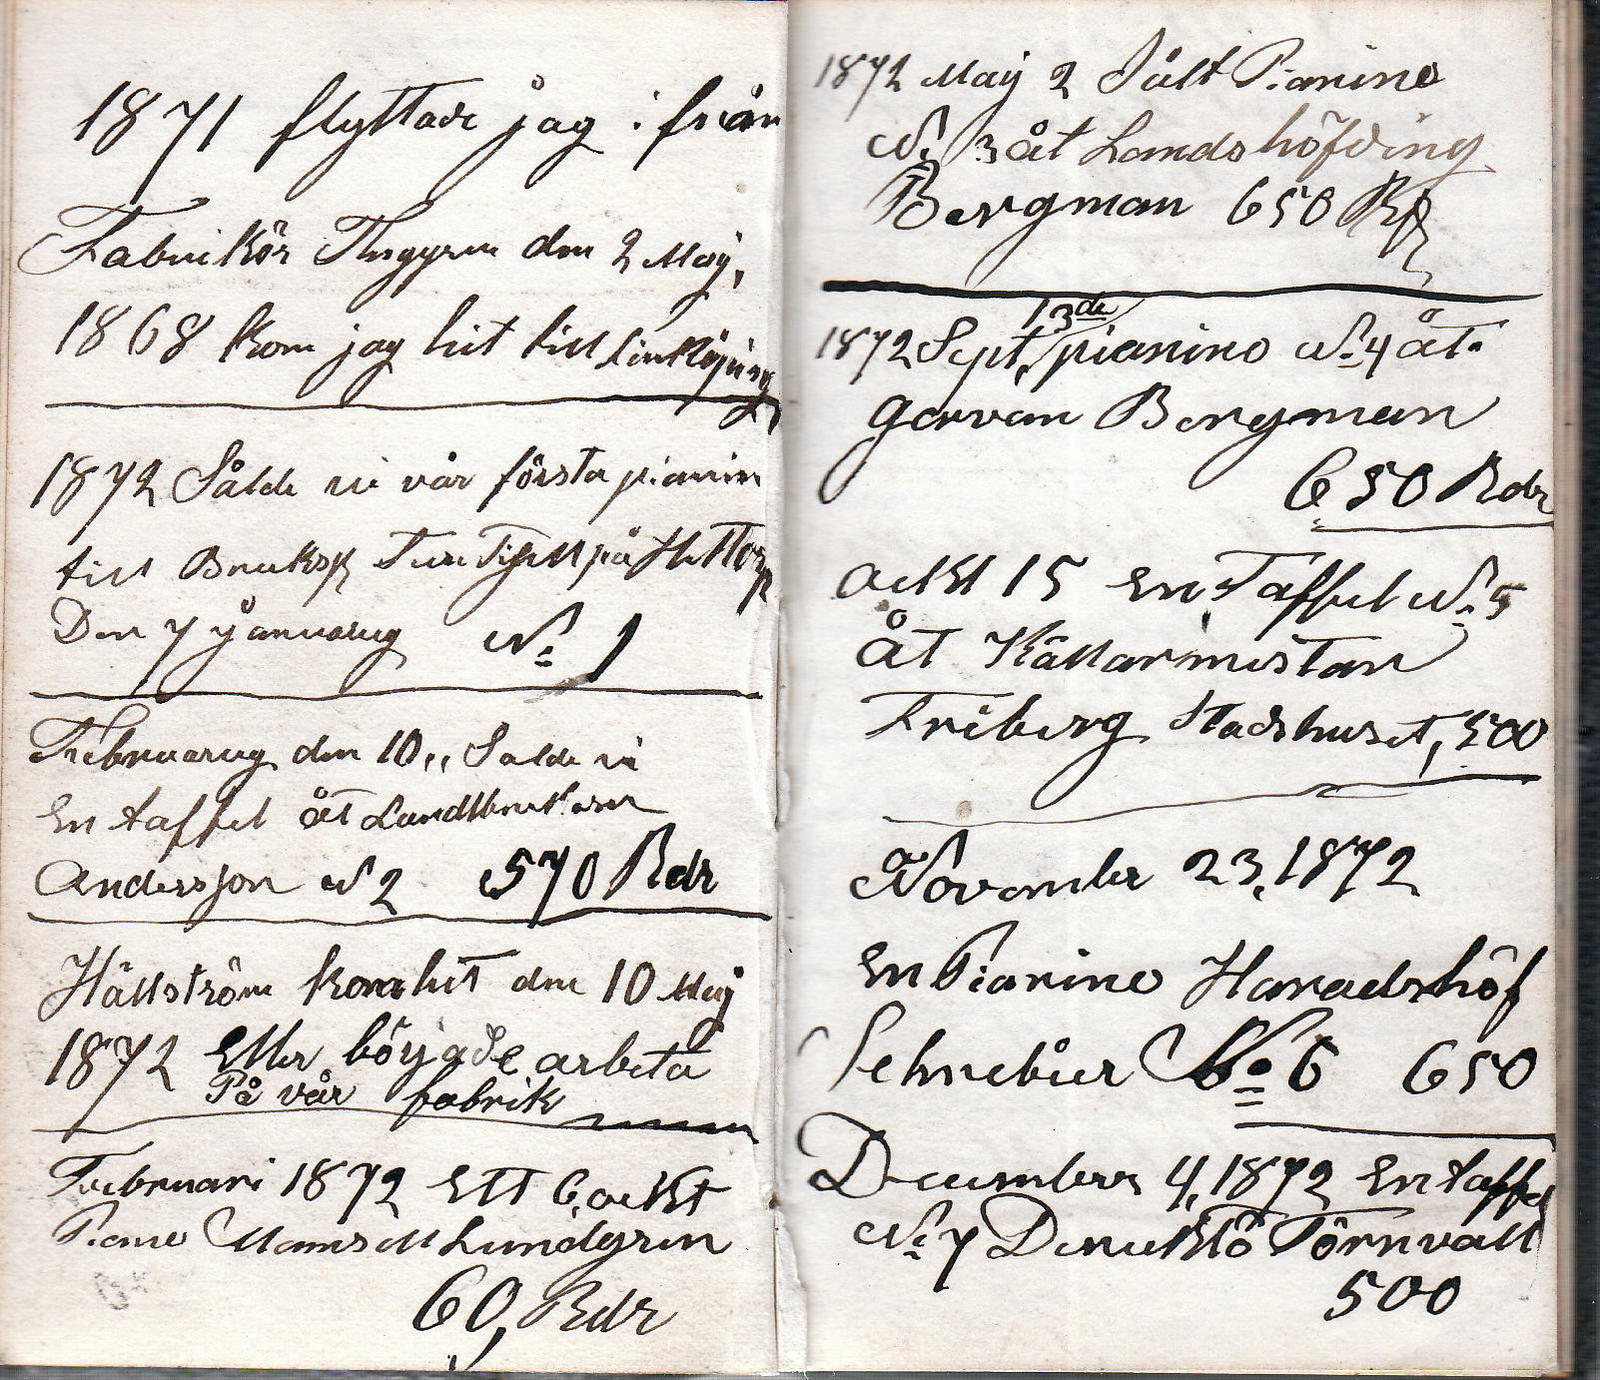 1871 flyttade jag ifrån
Fabrikör Theggren den 2 Maij,
1868 kom jag hit till Linköping
1872 Sålde vi vår första pianin
till Bruksp Ture Tisell på Hettorp
Den 7 Januarug No 1
Februarug den 10,, Salde vi
En taffel åt Landtbrukaren
Andersson N 2 570 Rdr
Hällström kom hit den 10 Maij
1872 Eller började arbeta
På vår fabrik
Februari 1872 Ett 6. ockt
Piano Mamsell Lundgren
60, Rdr
1872 Maij 2 Sålt Pianino
N. 3 åt Landshöfding
Bergman 650 Rd
13de
1872 Sept, pianino No 4 åt
garvan Bergman
650 Rdr
ockt 15 En Taffel No 5
åt Källarmästare
Friberg Stadshuset, 500
November 23, 1872
En Pianino Haradshöf
Schrebür No 6 650
December 4, 1872 En taffel
No 7 Direktö Törnvall
500